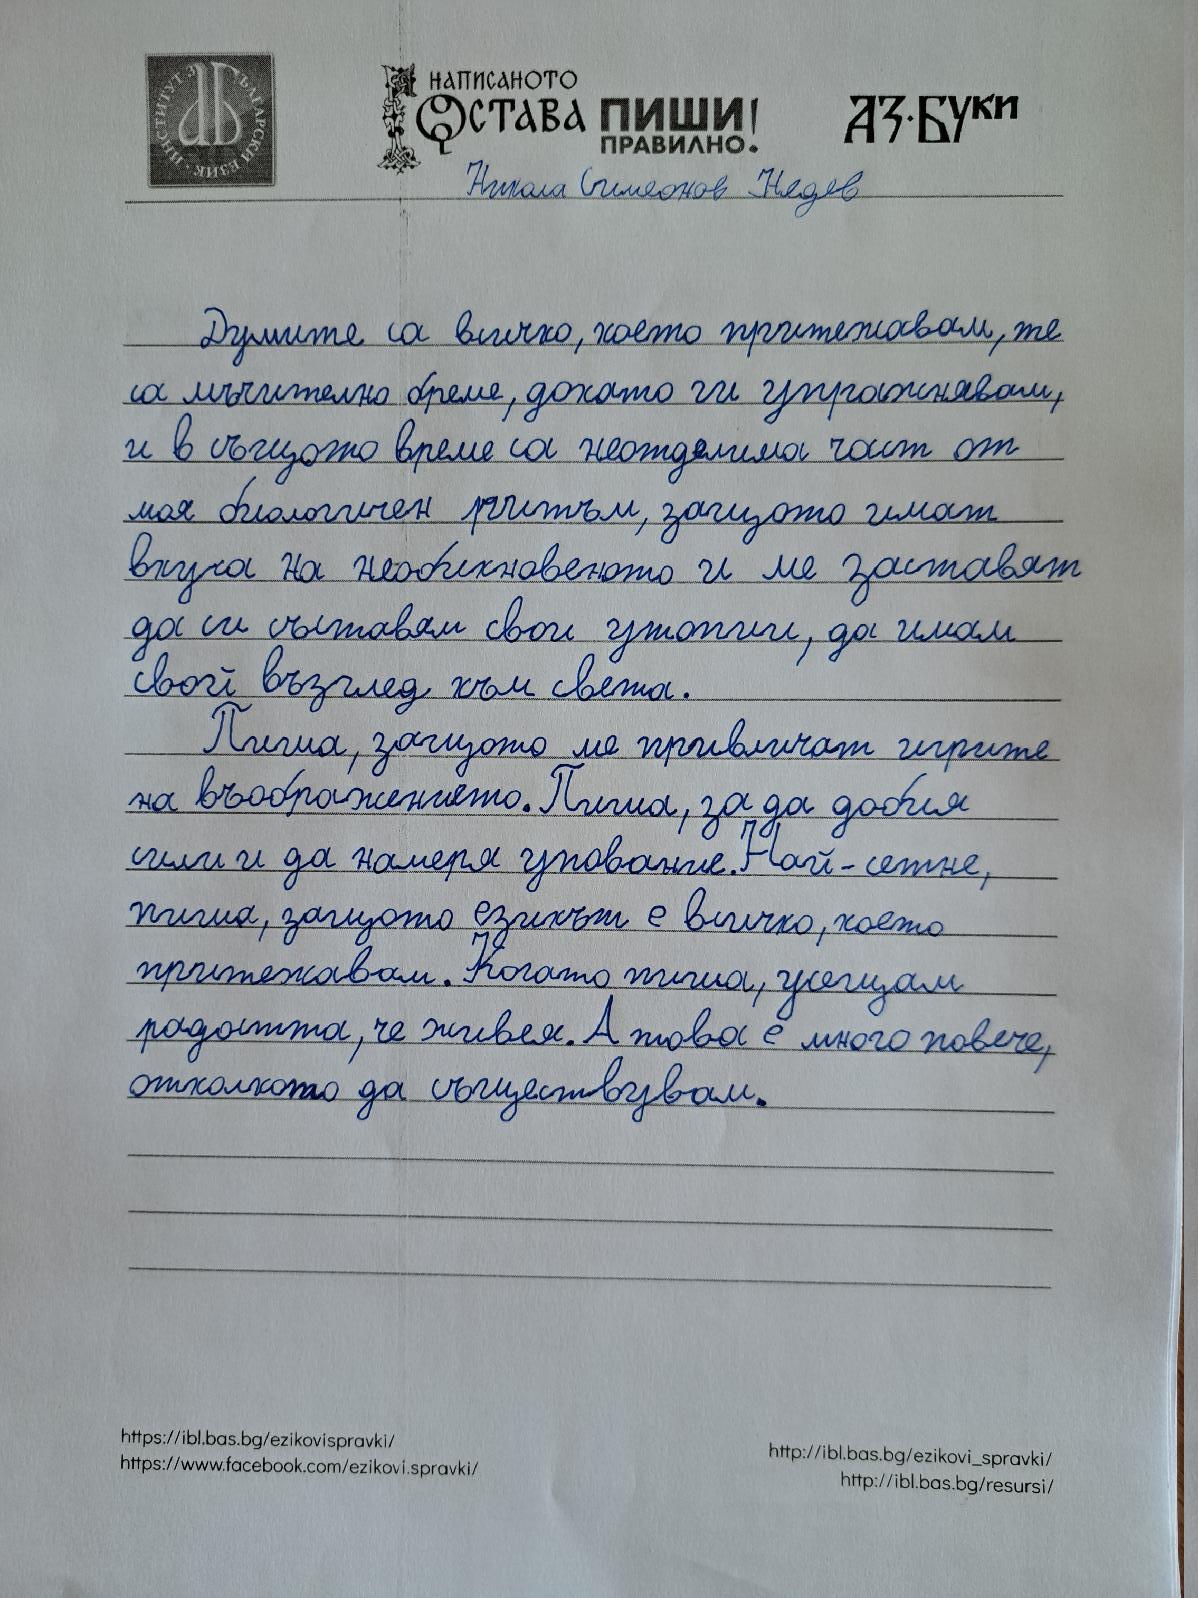 ИНСТИТУТ ЗА БЪЛГАРСКИ ЕЗИК
НАПИСАНОТО
ОСТАВА ПИШИ!
ПРАВИЛНО.
АЗ·БУКИ
Никола Симеонов Недев
Думите са всичко, което притежавам, те
са мъчително бреме, докато ги упражнявам,
и в същото време са неотделима част от
моя биологичен ритъм, защото имат
вкуса на необикновеното и ме заставят
да си съставям свои утопии, да имам
свой възглед към света.
Пиша, защото ме привличат игрите
на въображението. Пиша, за да добия
сили и да намеря упование. Най-сетне,
пиша, защото езикът е всичко, което
притежавам. Когато пиша, усещам
радостта, че живея. А това е много повече,
отколкото да съществувам.
https://ibl.bas.bg/ezikovispravki/
https://www.facebook.com/ezikovi.spravki/
http://ibl.bas.bg/ezikovi_spravki/
http://ibl.bas.bg/resursi/